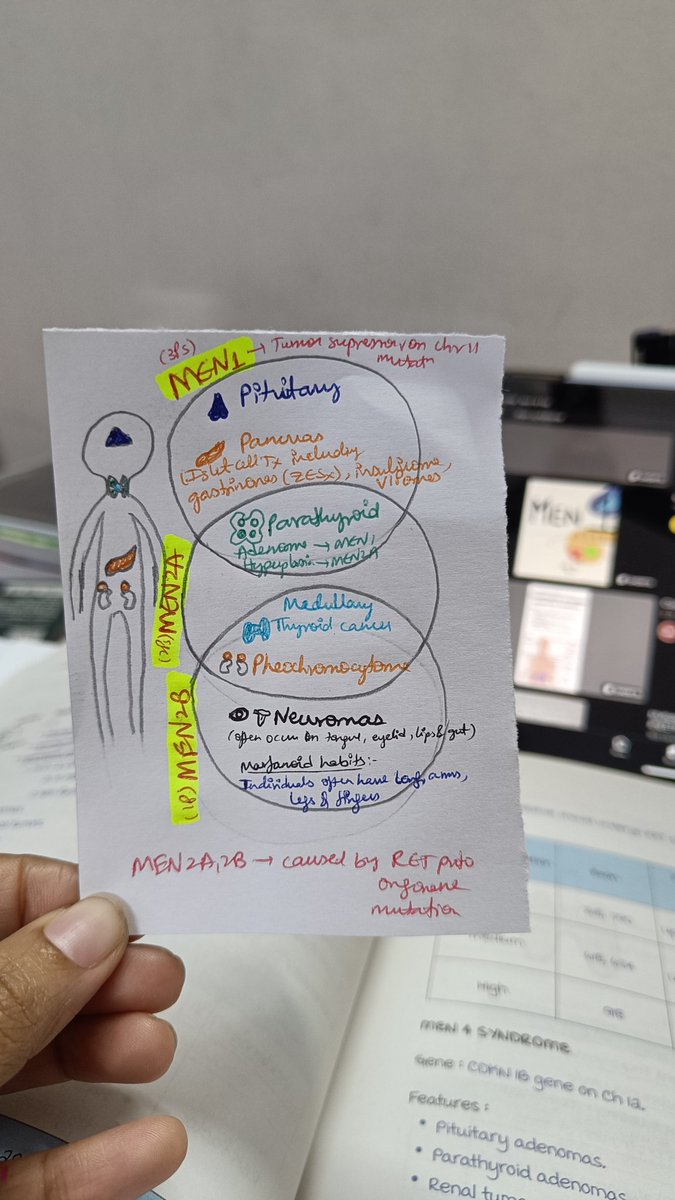 (3Ps)
MEN1 → Tumor supressor on chr 11
mutatn
Pituitary
Pancreas
(Islet cell Tx including
gastrinomas (ZESx), insulinoma,
VIPomas
Parathyroid
Adenoma → MEN1
Hyperplasia → MEN2A
(2Ps) MEN2A
Medullary
Thyroid cancer
Pheochromocytoma
(1P) MEN2B
Neuromas
(often occur on tongue, eyelid, lips & gut)
Marfanoid habits:-
Individuals often have long arms,
legs & fingers
MEN2A, 2B → caused by RET proto
oncogene
mutation
MEN
medium
High
MEN 4 SYNDROME
Gene : CDKN 1B gene on Ch 12.
Features :
• Pituitary adenomas.
• Parathyroid adenomas
• Renal